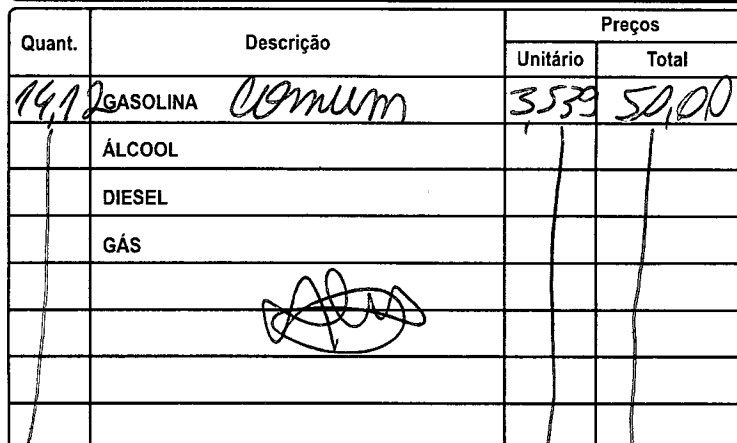 Quant. Descrição Preços
Unitário Total
14,12 GASOLINA comum 3,539 50,00
ÁLCOOL
DIESEL
GÁS